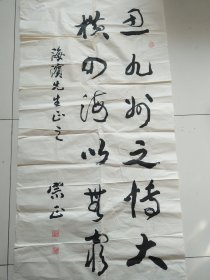 思九州之博大
横四海以焉穷
海滨先生正之
崇正